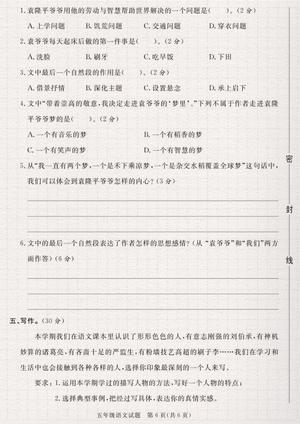 1.袁隆平爷爷用他的劳动与智慧帮助世界解决的一个问题是( )。(2分)
A.上学问题 B.饥荒问题 C.交通问题 D.穿衣问题
2.袁爷爷每天起床后做的第一件事是( )。(2分)
A.洗脸 B.刷牙 C.吃早饭 D.下田
3.文中最后一个自然段的作用是( )。(2分)
A.借景抒情 B.深化主题 C.设置悬念 D.承上启下
4.文中“带着崇高的敬意,我决定走进袁爷爷的‘梦里’。”下列不属于作者走进袁隆
平爷爷梦的是( )。(2分)
A.一个有音乐的梦 B.一个有稻香的梦
C.一个有笑声的梦 D.一个有智慧的梦
5.从“我一直有两个梦,一个是禾下乘凉梦,一个是杂交水稻覆盖全球梦”这句话中,
我们可以体会到袁隆平爷爷怎样的内心?(3分)
6.文中的最后一个自然段表达了作者怎样的思想感情?(从“袁爷爷”和“我们”两方
面作答)(6分)
五、写作。(30分)
本学期我们在语文课本里认识了形形色色的人,有意志刚强的刘伯承,有神机
妙算的诸葛亮,有吝啬十足的严监生,有粉墙技艺高超的刷子李……我们在学习和
生活中也会接触到各种各样的人,选择你印象最深刻的一个人来写。
要求:1.运用本学期学过的描写人物的方法,写好一个人物的特点;
2.选择典型事例,把经过写具体,表达你的真情实感。
五年级语文试题 第6页(共6页)
密
封
线